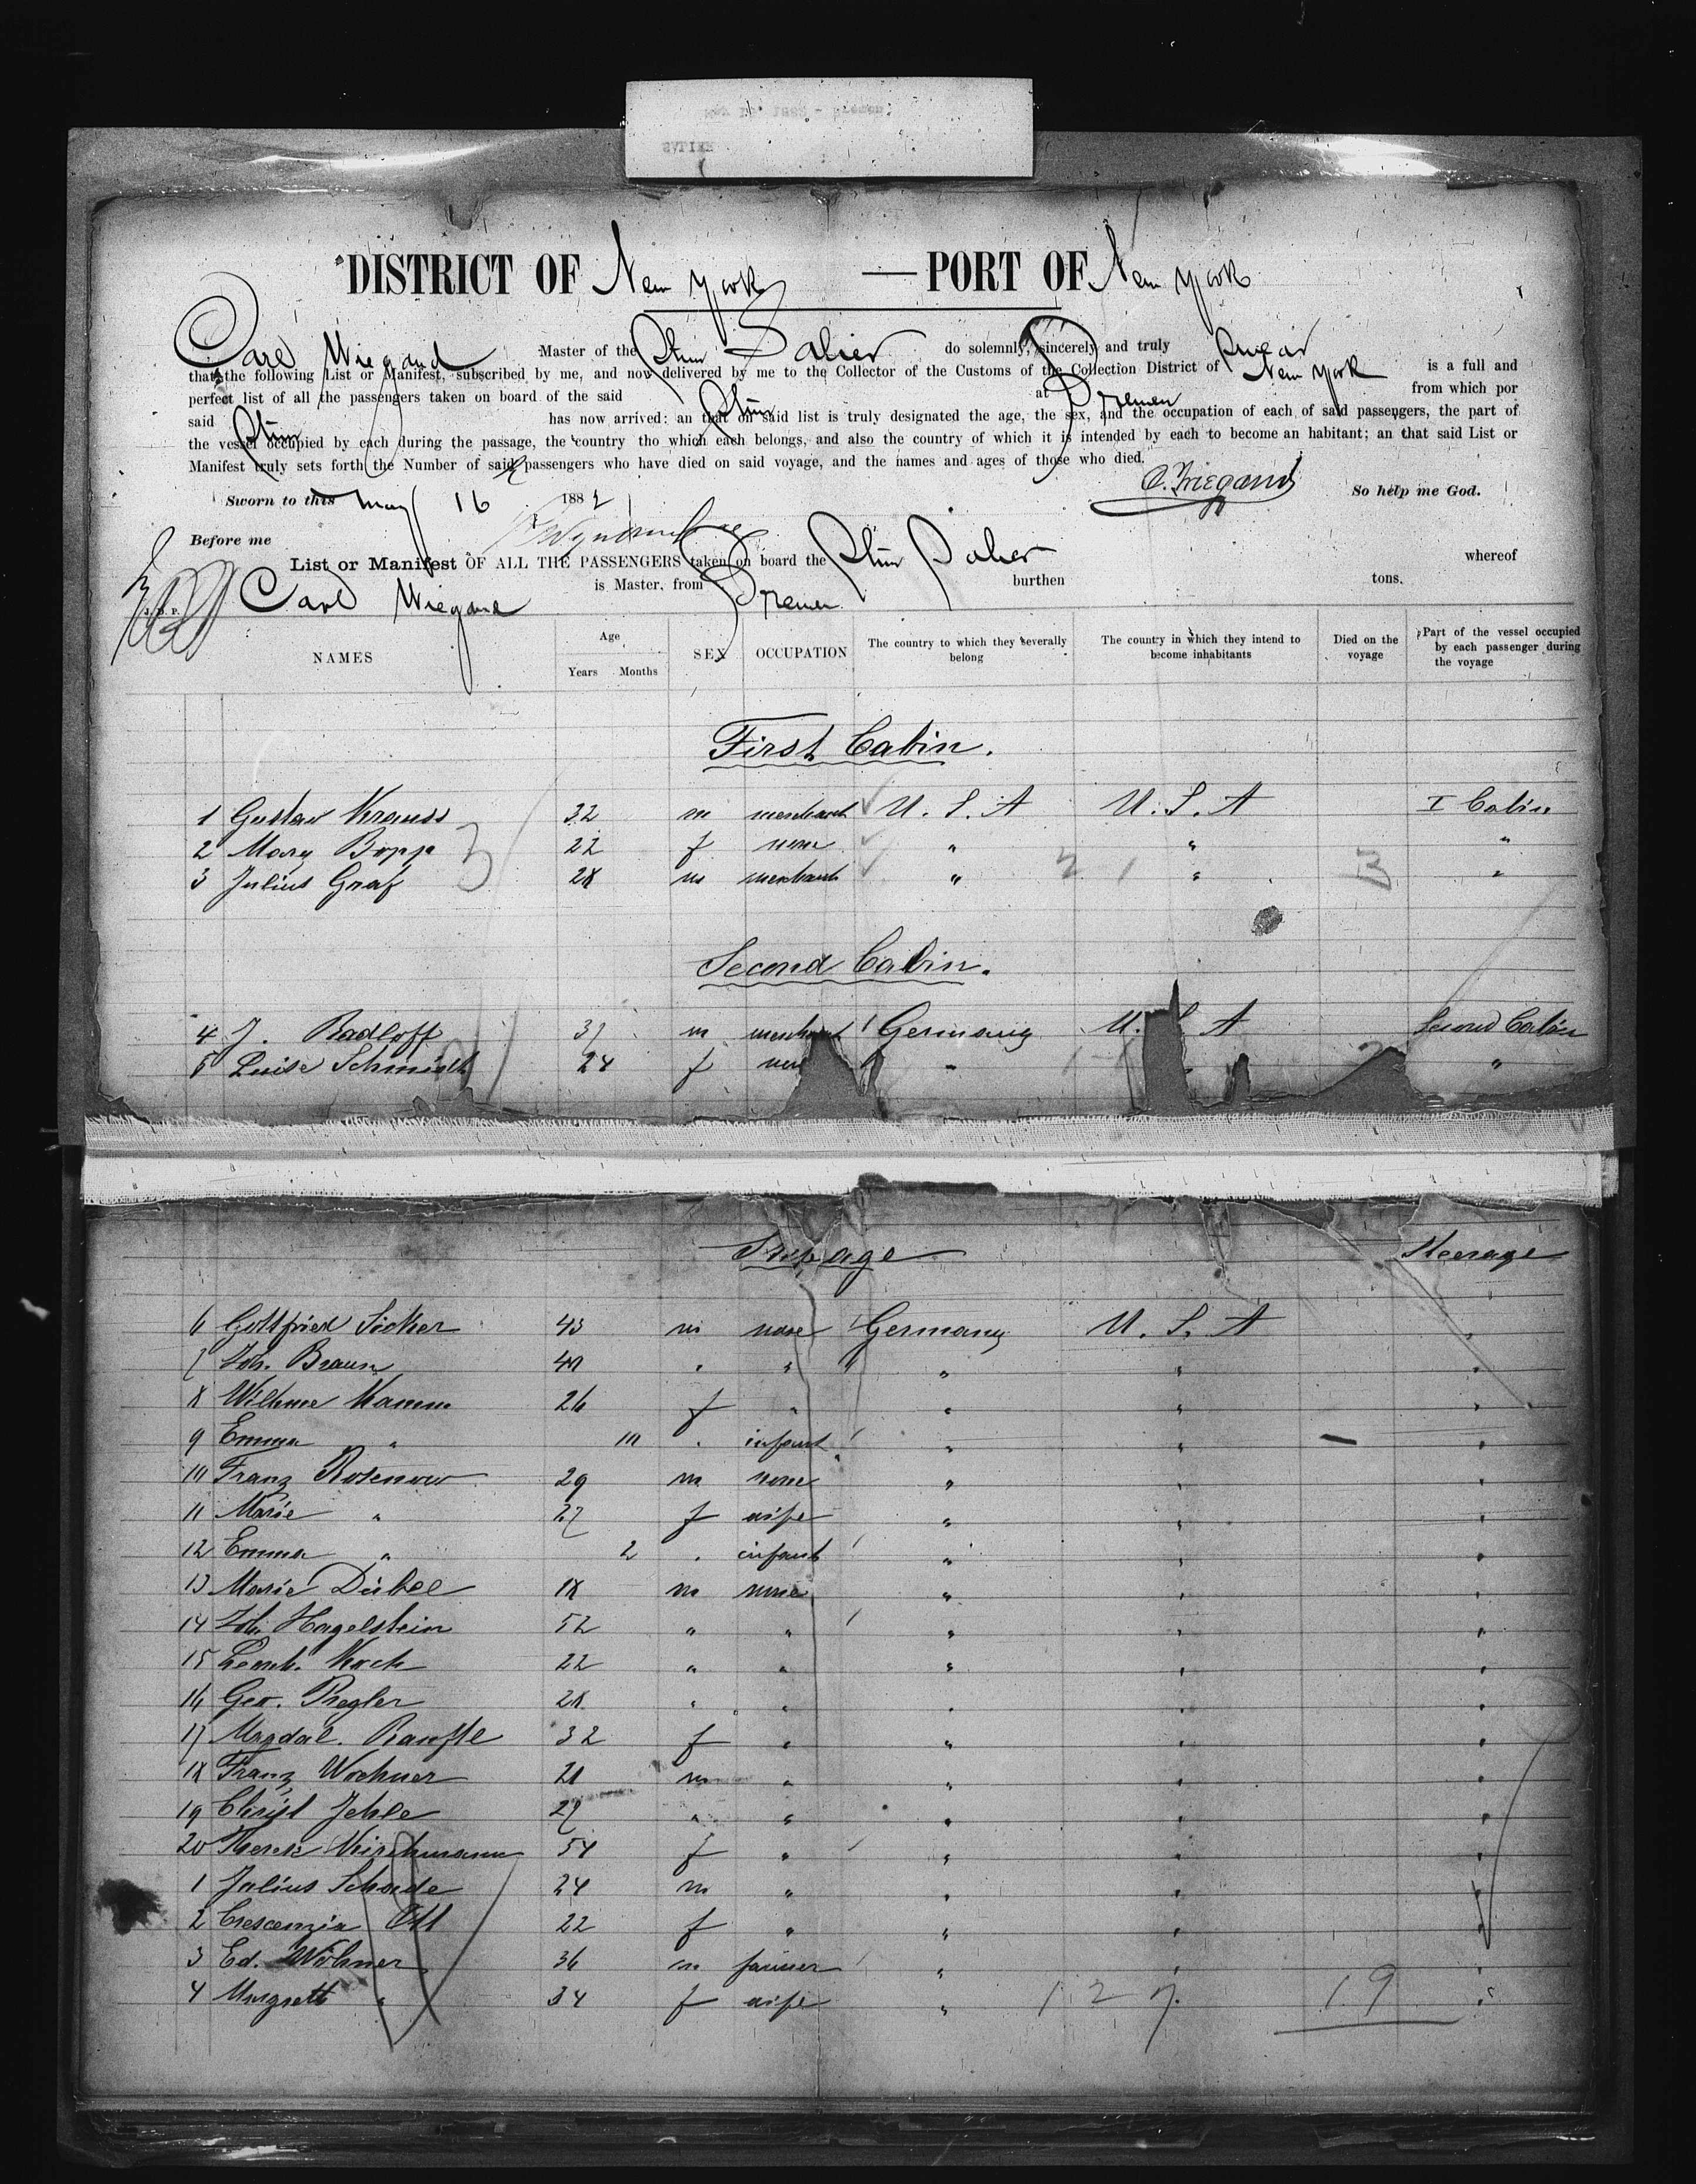 DISTRICT OF New York — PORT OF New York
Carl Wiegand Master of the Stmr Salier do solemnly, sincerely and truly swear
that the following List or Manifest, subscribed by me, and now delivered by me to the Collector of the Customs of the Collection District of New York is a full and
perfect list of all the passengers taken on board of the said Stmr at Bremen from which por
said Stmr has now arrived: an that on said list is truly designated the age, the sex, and the occupation of each of said passengers, the part of
the vessel occupied by each during the passage, the country tho which each belongs, and also the country of which it is intended by each to become an habitant; an that said List or
Manifest truly sets forth the Number of said passengers who have died on said voyage, and the names and ages of those who died.
C. Wiegand So help me God.
Sworn to this May 16 1882
Before me
List or Manifest OF ALL THE PASSENGERS taken on board the Stmr Salier whereof
Carl Wiegand is Master, from Bremen burthen tons.
NAMES Age Years Months SEX OCCUPATION The country to which they severally belong The country in which they intend to become inhabitants Died on the voyage Part of the vessel occupied by each passenger during the voyage
First Cabin.
1 Gustav Krauss 32 m merchant U. S. A U. S. A I Cabin
2 Mary Bopp 22 f none " " "
3 Julius Graf 28 m merchant " 2 1 " 3 "
Second Cabin.
4 J. Radloff 37 m merchant Germany U. S. A Second Cabin
5 Luise Schmidt 24 f none " "
Steerage Steerage
6 Gottfried Sicker 43 m none Germany U. S. A "
7 Joh. Braun 40 " " " " "
8 Wilhme Kamm 26 f " " " "
9 Emma " 10 " infant " " "
10 Franz Rosenow 29 m none " " "
11 Marie " 27 f wife " " "
12 Emma " 2 " infant " " "
13 Marie Dübel 18 m none " " "
14 Joh. Hagelstein 52 " " " " "
15 Koch 22 " " " " "
16 Geo. Pregler 28 " " " " "
17 Magdal. 32 f " " " "
18 Franz Wochner 21 m " " " "
19 Christ Jehle 27 " " " " "
20 Kirchmann 54 f " " " "
1 Julius Schade 24 m " " " "
2 Crescenzia Ott 22 f " " " "
3 Ed. Wöhner 36 m farmer " " "
4 Margreth " 34 f wife " 1 2 7. 19 "